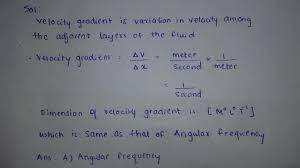 Sol:
Velocity gradient is variation in velocity among
the adjacent layers of the fluid
• Velocity gradient : ΔV/Δx = meter/second × 1/meter
= 1/second
Dimension of velocity gradient is [M⁰L⁰T⁻¹]
which is same as that of Angular frequency
Ans: A) Angular frequency